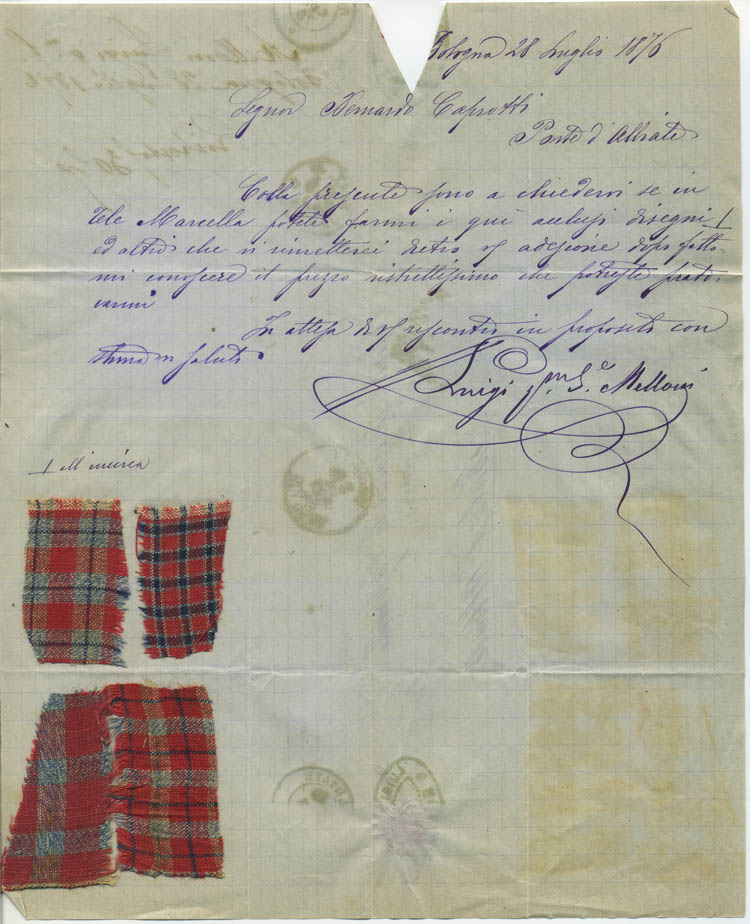 Bologna 28 Luglio 1876
Signor Bernardo Caprotti
Ponte d'Albiate
Colla presente sono a chiedervi se in
tele Marcella potete farmi i quì acclusi disegni
ed altri che vi rimetterei dietro V adesione dopo fatto-
mi conoscere il prezzo ristrettissimo che potreste prati-
carmi
In attesa di V riscontro in proposito con
stima vi saluto
Luigi Melloni